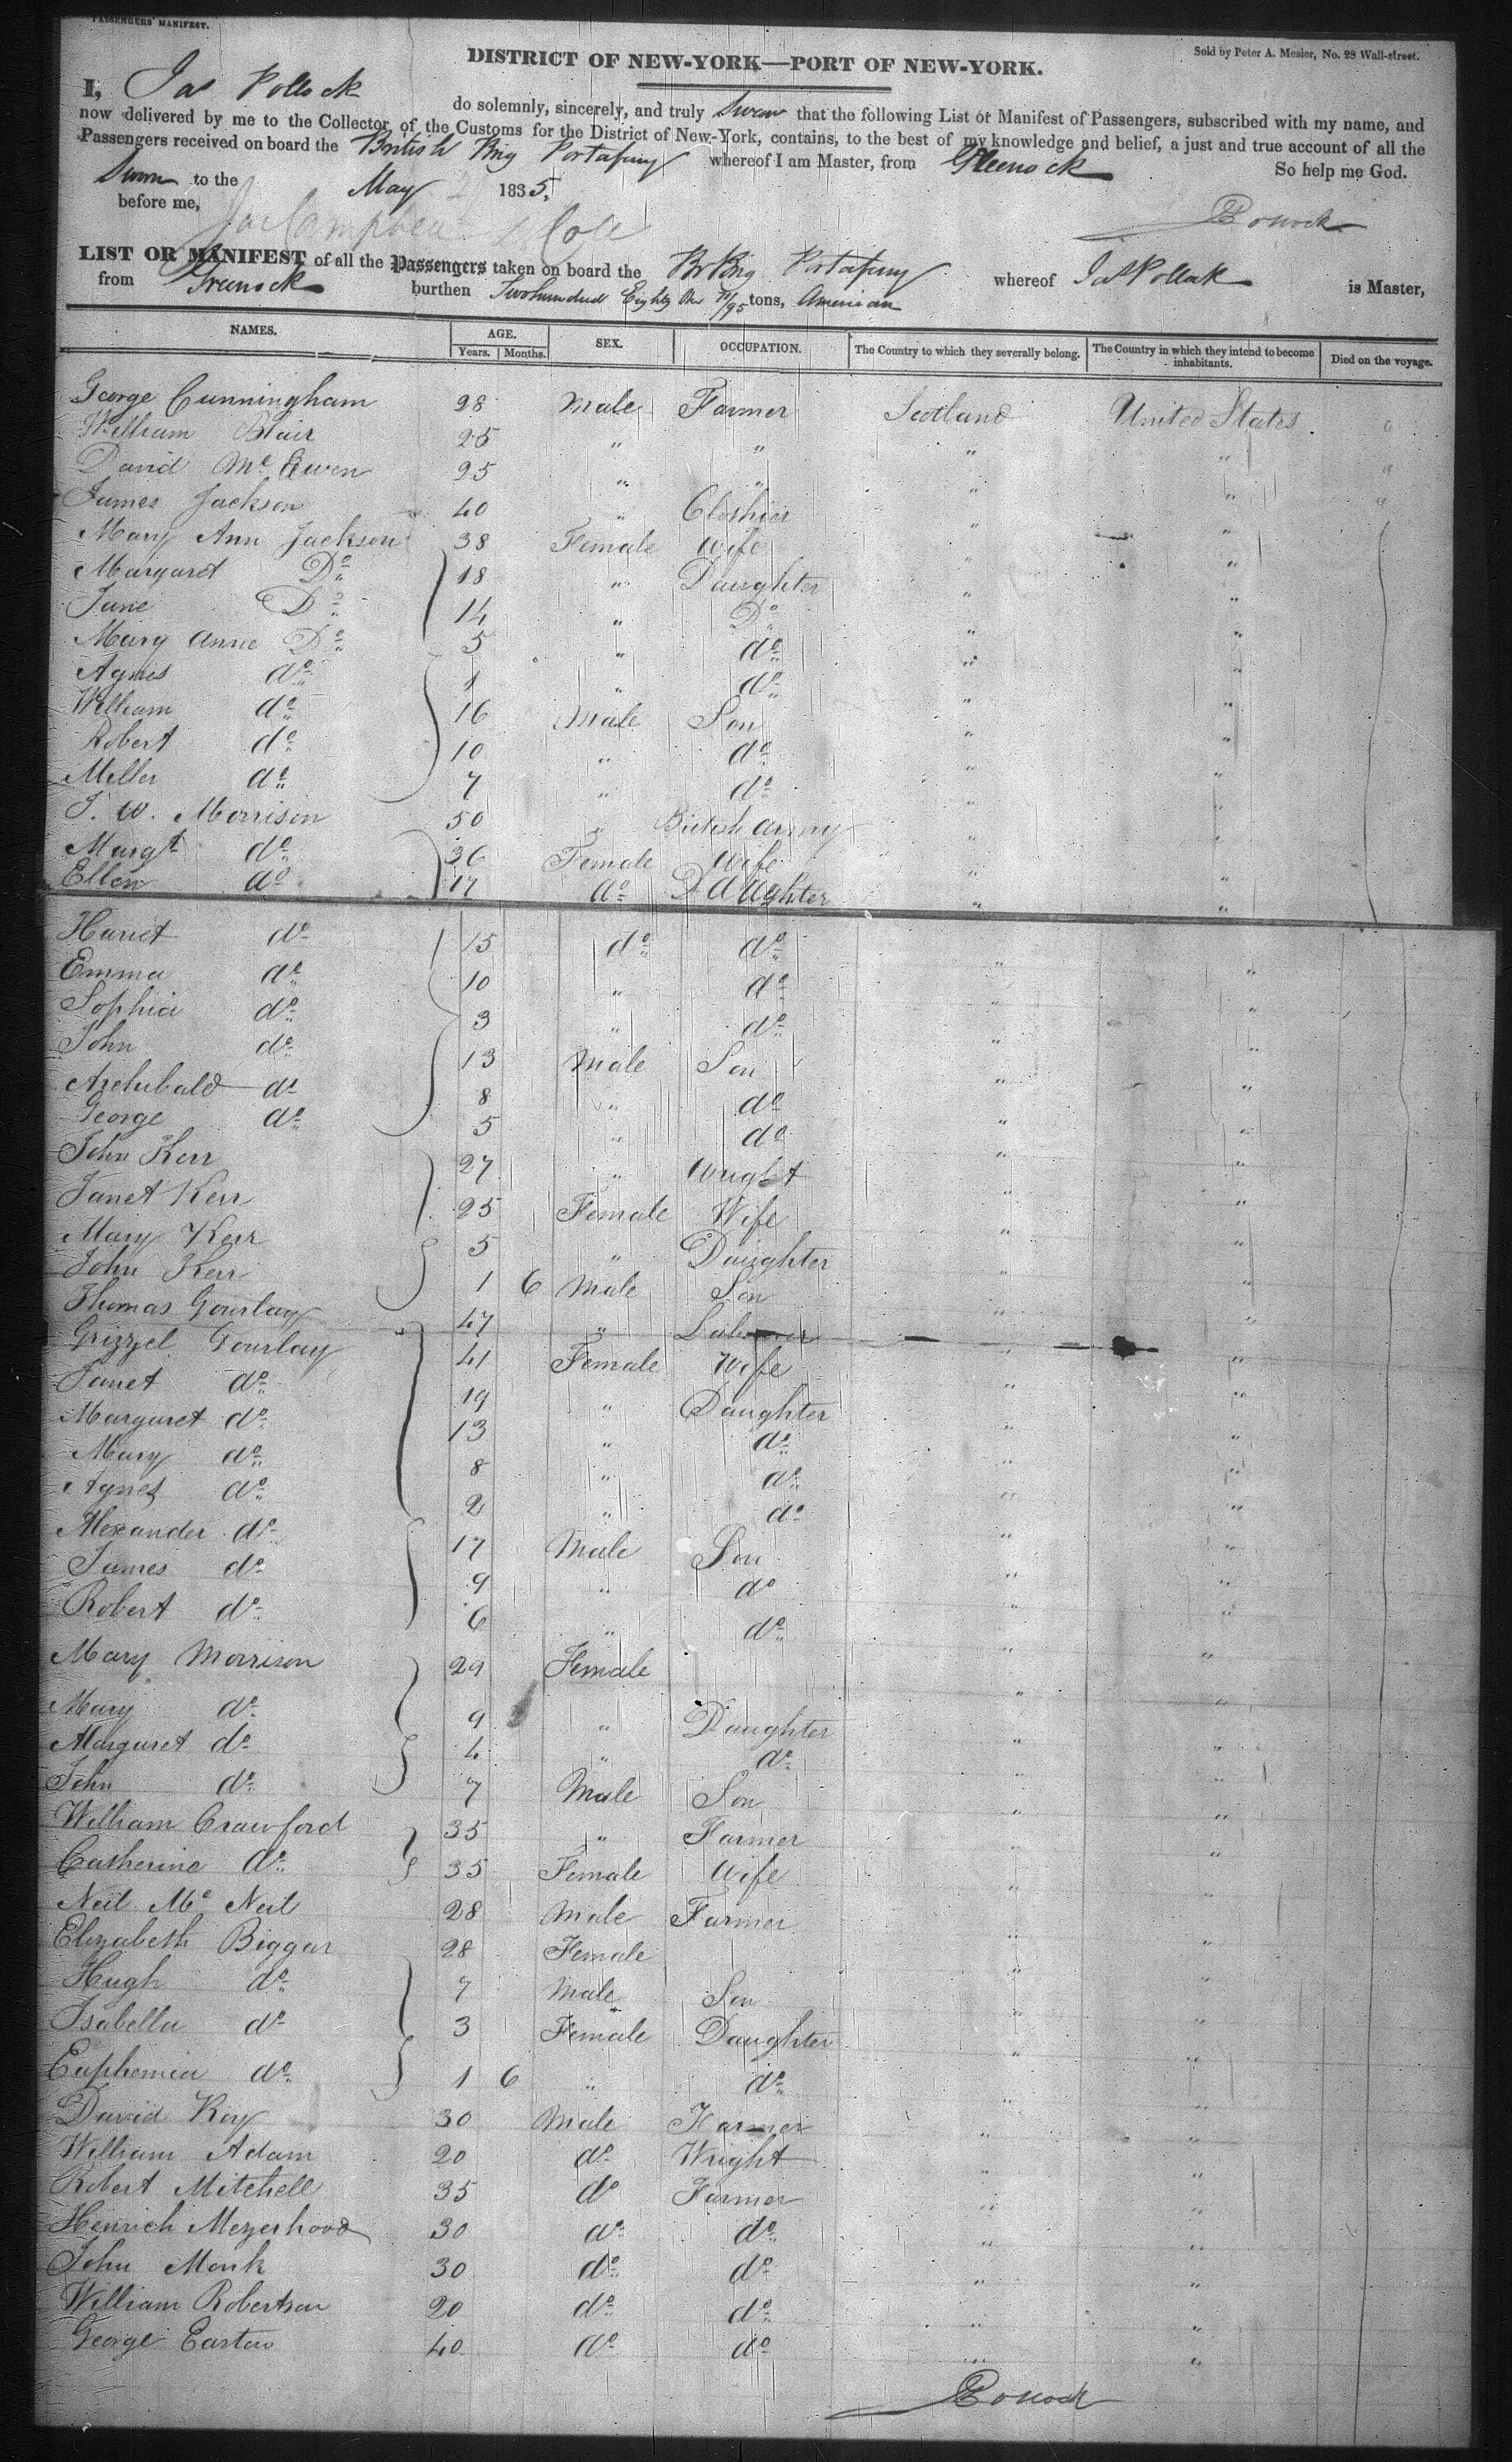 PASSENGERS' MANIFEST.
Sold by Peter A. Mesier, No. 28 Wall-street.
DISTRICT OF NEW-YORK—PORT OF NEW-YORK.
I, Jas Pollock do solemnly, sincerely, and truly Swear that the following List or Manifest of Passengers, subscribed with my name, and
now delivered by me to the Collector of the Customs for the District of New-York, contains, to the best of my knowledge and belief, a just and true account of all the
Passengers received on board the British Brig whereof I am Master, from Greenock
Sworn to the May 1835. So help me God.
before me,
LIST OR MANIFEST of all the Passengers taken on board the Br Brig whereof Jas Pollock is Master,
from Greenock burthen Two hundred Eighty One /95 tons, American
NAMES. AGE. SEX. OCCUPATION. The Country to which they severally belong. The Country in which they intend to become inhabitants. Died on the voyage.
Years. Months.
George Cunningham 28 Male Farmer Scotland United States
William Blair 25 " " " "
David Mc Ewen 25 " " " "
James Jackson 40 " Clothier " "
Mary Ann Jackson 38 Female Wife " "
Margaret Do 18 " Daughter " "
Jane Do 14 " Do " "
Mary Anne Do 5 " do " "
Agnes do 1 " do " "
William do 16 Male Son " "
Robert do 10 " do " "
Miller do 7 " do " "
J. W. Morrison 50 " British Army " "
Margt do 36 Female Wife " "
Ellen do 17 do Daughter " "
Hariet do 15 do do " "
Emma do 10 " do " "
Sophia do 3 " do " "
John do 13 Male Son " "
Archibald do 8 " do " "
George do 5 " do " "
John Kerr 27 " Wright " "
Janet Kerr 25 Female Wife " "
Mary Kerr 5 " Daughter " "
John Kerr 1 6 Male Son " "
Thomas Gourlay 47 " Labourer " "
Grizzel Gourlay 41 Female Wife " "
Janet do 19 " Daughter " "
Margaret do 13 " do " "
Mary do 8 " do " "
Agnes do 2 " do " "
Alexander do 17 Male Son " "
James do 9 " do " "
Robert do 6 " do " "
Mary Morrison 29 Female " "
Mary do 9 " Daughter " "
Margaret do 4 " do " "
John do 7 Male Son " "
William Crawford 35 " Farmer " "
Catherine do 35 Female Wife " "
Neil Mc Neil 28 Male Farmer " "
Elizabeth Biggar 28 Female " "
Hugh do 7 Male Son " "
Isabella do 3 Female Daughter " "
Euphemia do 1 6 " do " "
David Roy 30 Male Farmer " "
William Adam 20 do Wright " "
Robert Mitchell 35 do Farmer " "
Henrich Meyerhood 30 do do " "
John Monk 30 do do " "
William Robertson 20 do do " "
George Easton 40 do do " "